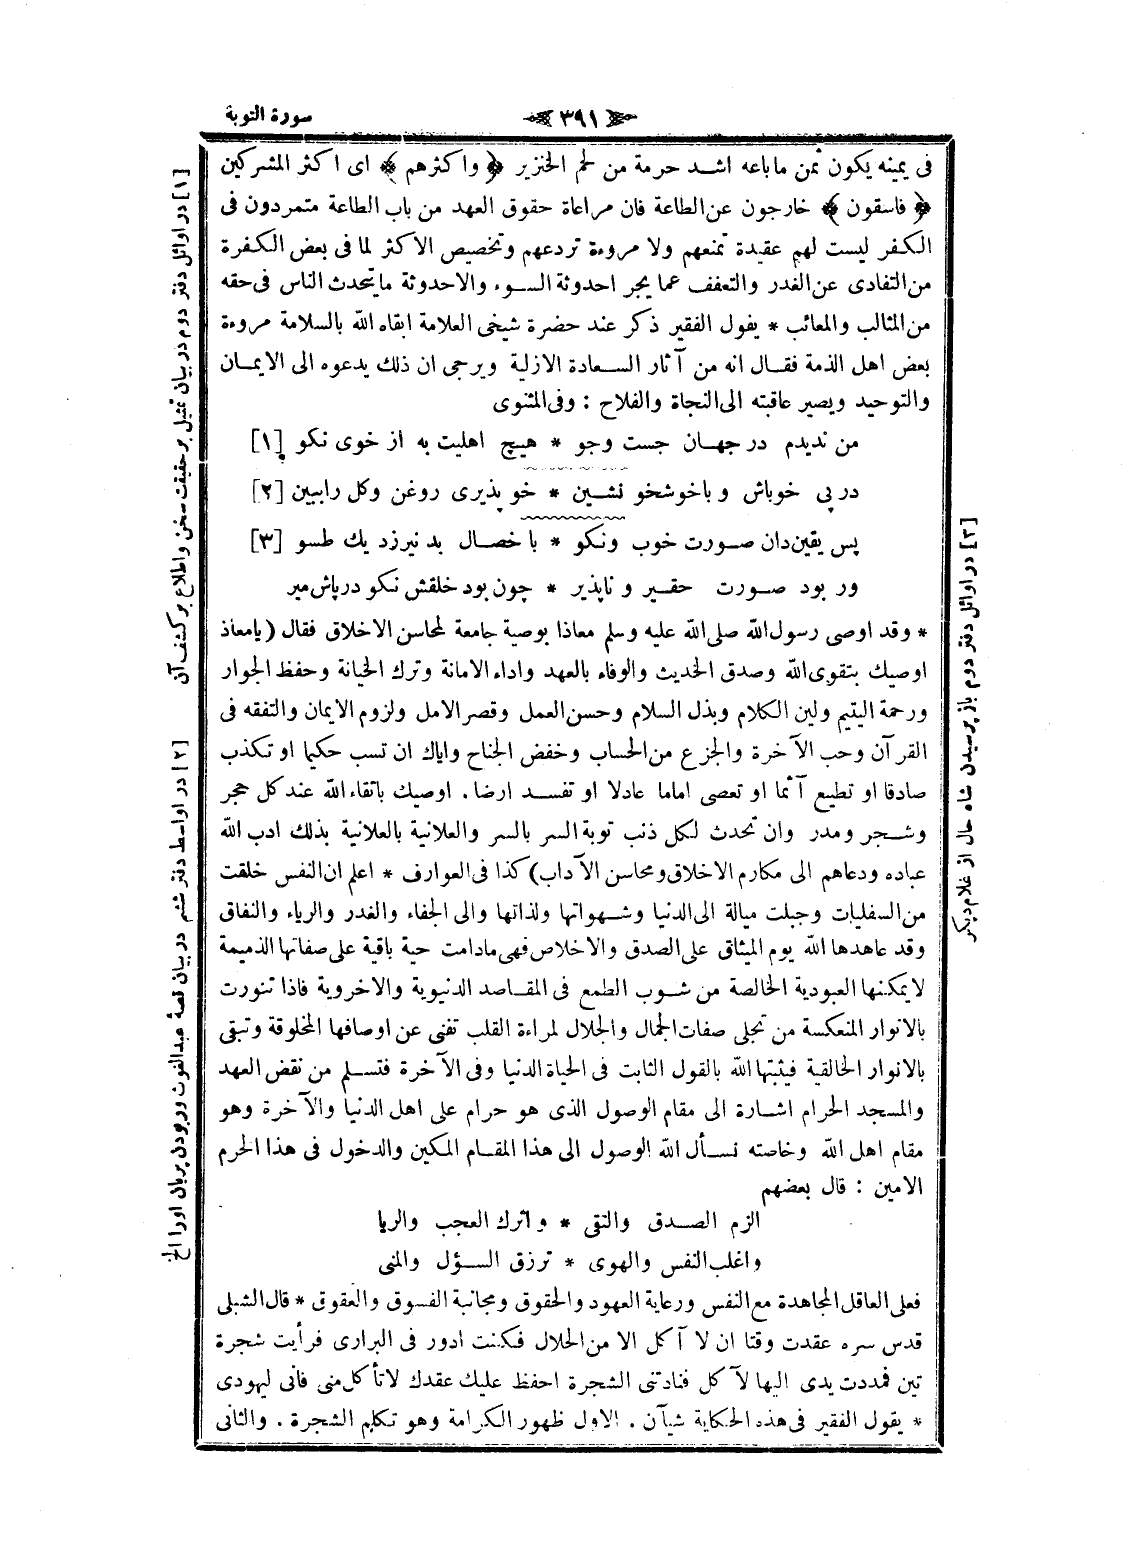 سورة التوبة
٣٩١
فى يمينه يكون ثمن ماباعه اشد حرمة من لحم الخنزير ﴿ واكثرهم ﴾ اى اكثر المشركين
﴿ فاسقون ﴾ خارجون عن الطاعة فان مراعاة حقوق العهد من باب الطاعة متمردون فى
الكفر ليست لهم عقيدة تمنعهم ولا مروءة تردعهم وتخصيص الاكثر لما فى بعض الكفرة
من التفادى عن الغدر والتعفف عما يجر احدوثة السوء والاحدوثة مايتحدث الناس فى حقه
من المثالب والمعائب * يقول الفقير ذكر عند حضرة شيخى العلامة ابقاه الله بالسلامة مروءة
بعض اهل الذمة فقال انه من آثار السعادة الازلية ويرجى ان ذلك يدعوه الى الايمان
والتوحيد ويصير عاقبته الى النجاة والفلاح : وفى المثنوى
من نديدم در جهان جست وجو * هيچ اهليت به از خوى نكو [١]
در پى خوباش وباخوشخو نشين * خو پذيرى روغن وكل رابين [٢]
پس يقين دان صورت خوب ونكو * با خصال بد نيرزد يك طسو [٣]
ور بود صورت حقير و ناپذير * چون بود خلقش نكو درپاش مير
* وقد اوصى رسول الله صلى الله عليه وسلم معاذا بوصية جامعة لمحاسن الاخلاق فقال (يامعاذ
اوصيك بتقوى الله وصدق الحديث والوفاء بالعهد واداء الامانة وترك الخيانة وحفظ الجوار
ورحمة اليتيم ولين الكلام وبذل السلام وحسن العمل وقصر الامل ولزوم الايمان والتفقه فى
القرآن وحب الآخرة والجزع من الحساب وخفض الجناح واياك ان تسب حكيما او تكذب
صادقا او تطيع آثما او تعصى اماما عادلا او تفسد ارضا . اوصيك باتقاء الله عند كل حجر
وشجر ومدر وان تحدث لكل ذنب توبة السر بالسر والعلانية بالعلانية بذلك ادب الله
عباده ودعاهم الى مكارم الاخلاق ومحاسن الآداب) كذا فى العوارف * اعلم ان النفس خلقت
من السفليات وجبلت ميالة الى الدنيا وشهواتها ولذاتها والى الجفاء والغدر والرياء والنفاق
وقد عاهدها الله يوم الميثاق على الصدق والاخلاص فهى مادامت حية باقية على صفاتها الذميمة
لايمكنها العبودية الخالصة من شوب الطمع فى المقاصد الدنيوية والاخروية فاذا تنورت
بالانوار المنعكسة من تجلى صفات الجمال والجلال لمراءة القلب تفنى عن اوصافها المخلوقة وتبقى
بالانوار الخالقية فيثبتها الله بالقول الثابت فى الحياة الدنيا وفى الآخرة فتسلم من نقض العهد
والمسجد الحرام اشارة الى مقام الوصول الذى هو حرام على اهل الدنيا والآخرة وهو
مقام اهل الله وخاصته نسأل الله الوصول الى هذا المقام المكين والدخول فى هذا الحرم
الامين : قال بعضهم
الزم الصدق والتقى * واترك العجب والريا
واغلب النفس والهوى * ترزق السؤل والمنى
فعلى العاقل المجاهدة مع النفس ورعاية العهود والحقوق ومجانبة الفسوق والعقوق * قال الشبلى
قدس سره عقدت وقتا ان لا آكل الا من الحلال فكنت ادور فى البرارى فرأيت شجرة
تين فمددت يدى اليها لآكل فنادتنى الشجرة احفظ عليك عقدك لاتأكل منى فانى ليهودى
* يقول الفقير فى هذه الحكاية شيآن . الاول ظهور الكرامة وهو تكلم الشجرة . والثانى
[١] در اوائل دفتر دوم در بيان تمثيل بر حقيقت سخن واطلاع بر كشف آن
[٢] در اواسط دفتر ششم در بيان قصهٔ عبدالغوث وربودن پريان اورا الخ
[٣] در اوائل دفتر دوم باز پرسيدن شاه حال از غلام ديكر